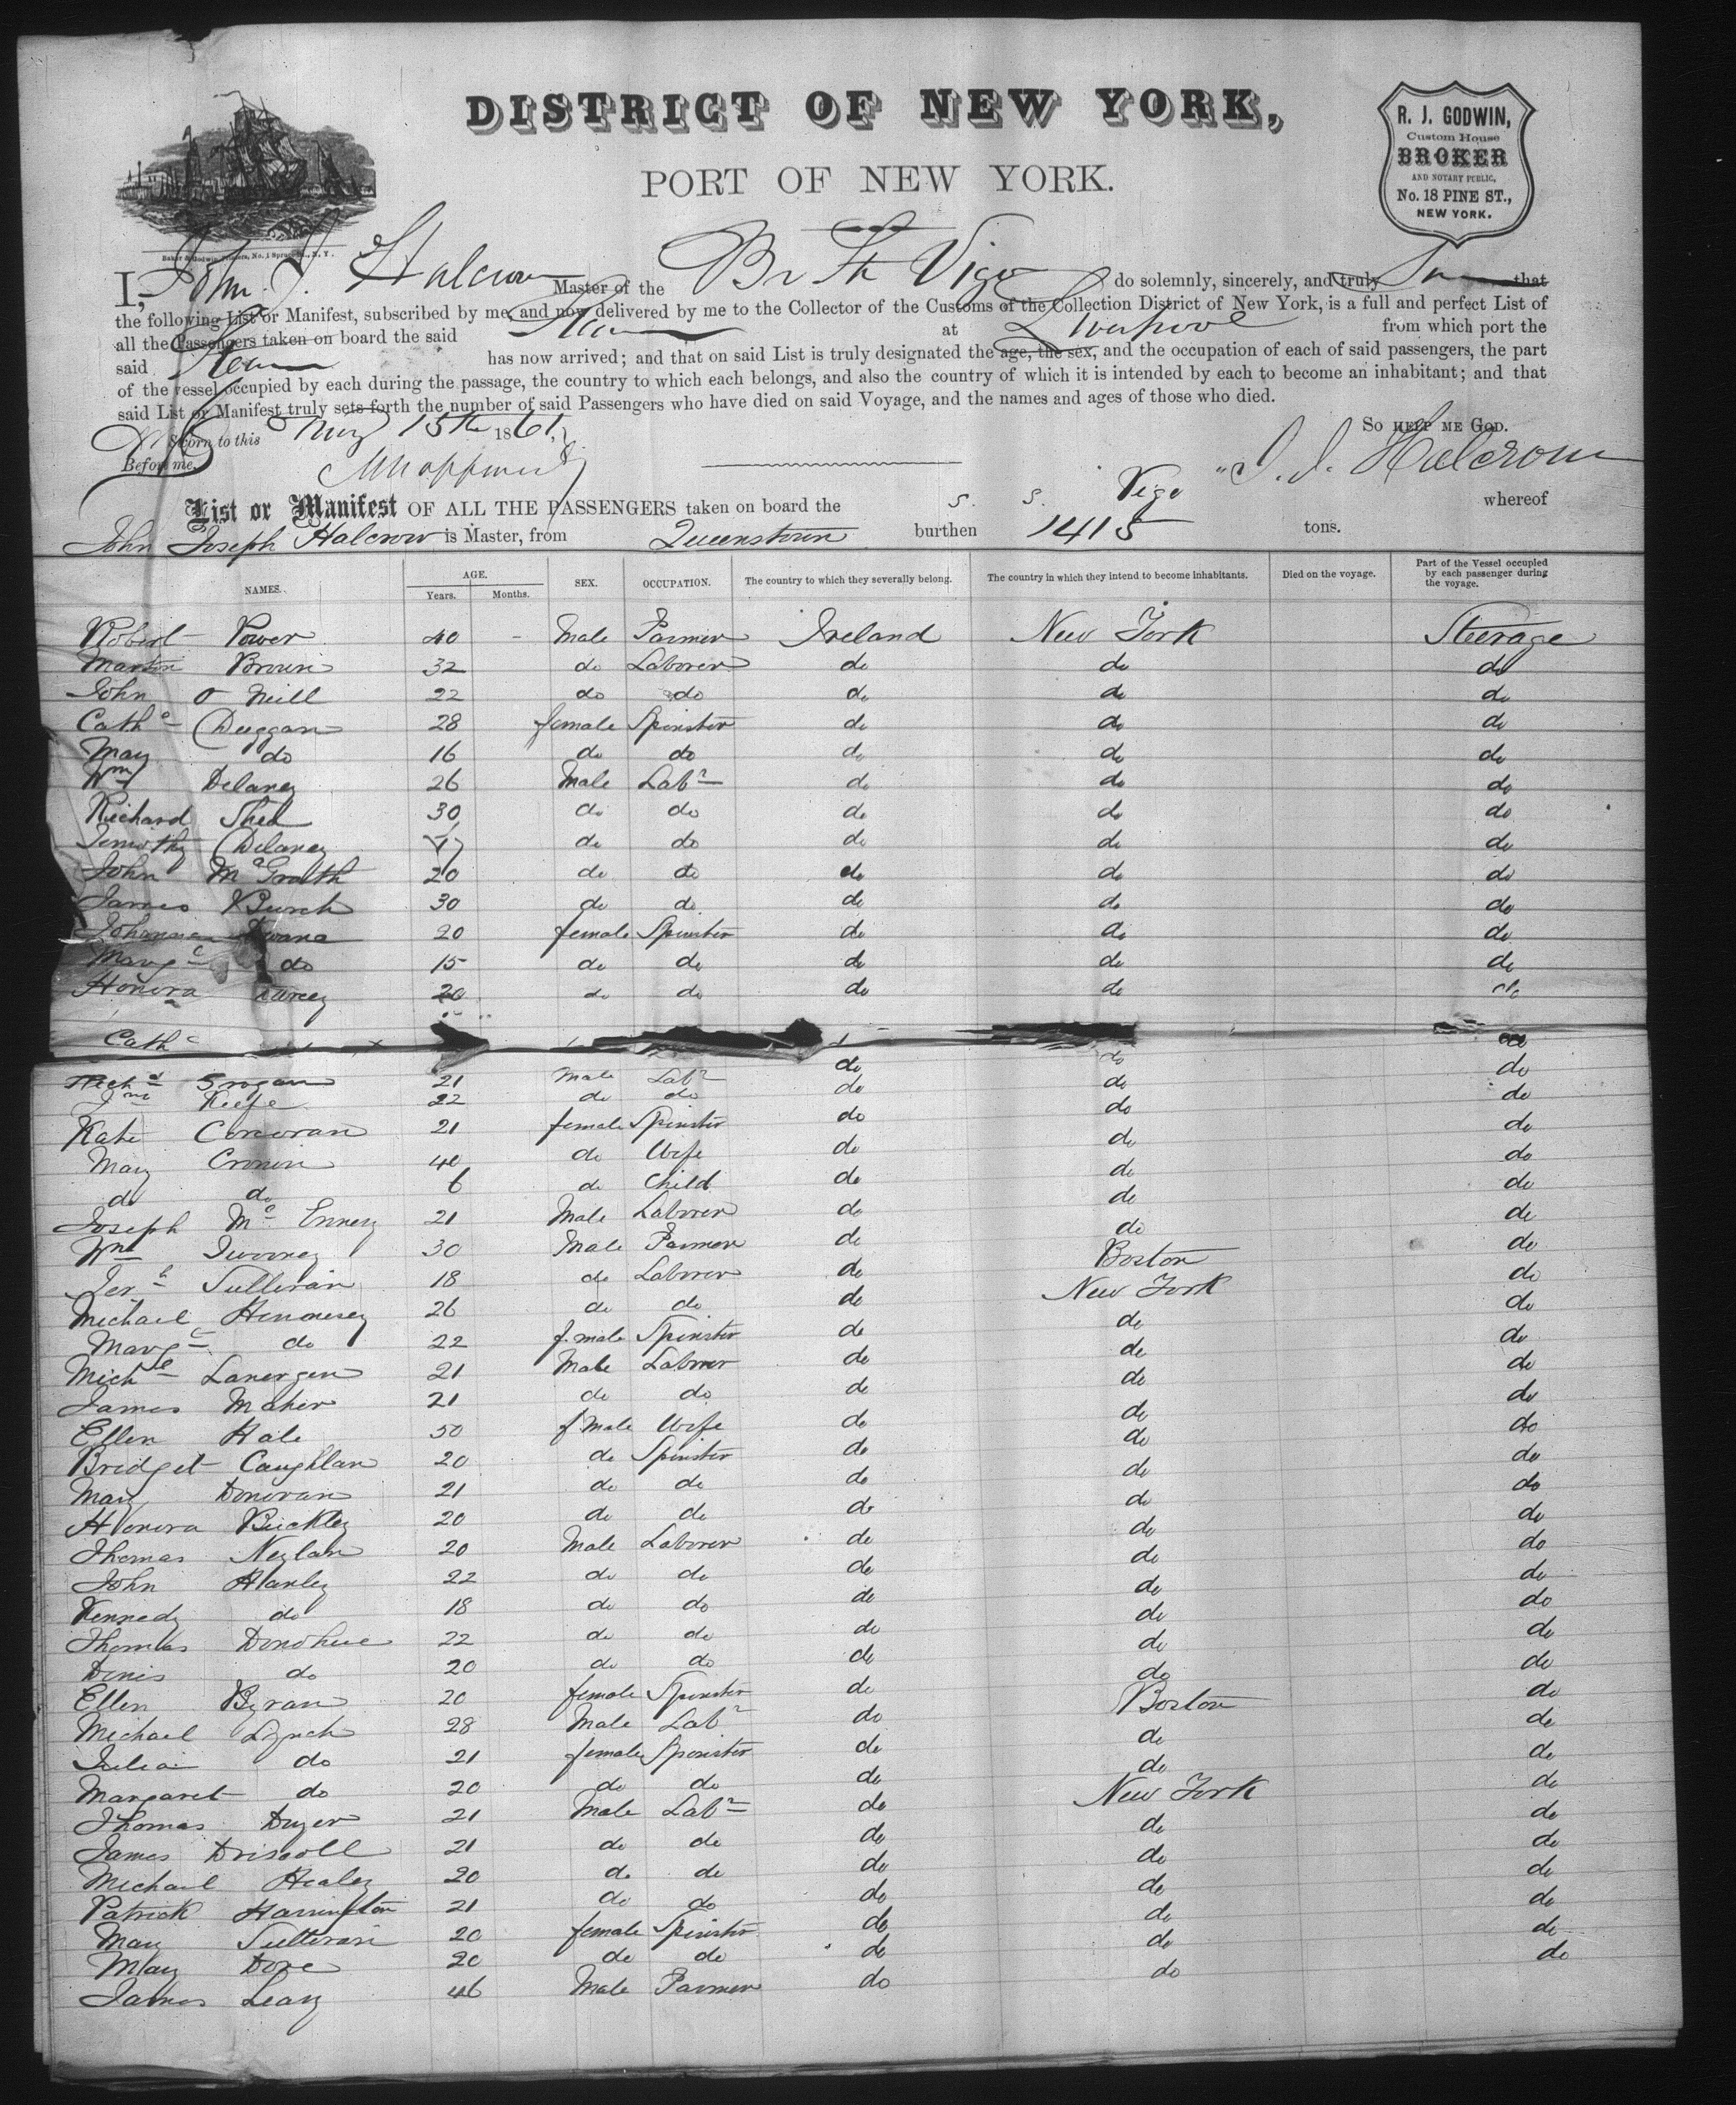 DISTRICT OF NEW YORK,
PORT OF NEW YORK.
R. J. GODWIN,
Custom House
BROKER
AND NOTARY PUBLIC,
No. 18 PINE ST.,
NEW YORK.
Baker & Godwin, Printers, No. 1 Spruce St., N. Y.
I, John J. Halcrow Master of the Br Vigo do solemnly, sincerely, and truly that
the following List or Manifest, subscribed by me, and now delivered by me to the Collector of the Customs of the Collection District of New York, is a full and perfect List of
all the Passengers taken on board the said at Liverpool from which port the
said has now arrived; and that on said List is truly designated the age, the sex, and the occupation of each of said passengers, the part
of the vessel occupied by each during the passage, the country to which each belongs, and also the country of which it is intended by each to become an inhabitant; and that
said List or Manifest truly sets forth the number of said Passengers who have died on said Voyage, and the names and ages of those who died.
Sworn to this 15th 1861, So HELP ME GOD.
Before me, J. J. Halcrow
List or Manifest OF ALL THE PASSENGERS taken on board the S. S. Vigo whereof
John Joseph Halcrow is Master, from Queenstown burthen 1415 tons.
NAMES. AGE. Years. Months. SEX. OCCUPATION. The country to which they severally belong. The country in which they intend to become inhabitants. Died on the voyage. Part of the Vessel occupied by each passenger during the voyage.
Robert Power 40 - Male Farmer Ireland New York Steerage
Martin Brown 32 do Laborer do do do
John O Neill 22 do do do do do
Cathe Duggan 28 female Spinster do do do
Mary do 16 do do do do do
Wm Delaney 26 Male Labr do do do
Richard Shed 30 do do do do do
Timothy Delaney do do do do do
John McGrath 20 do do do do do
James Burch 30 do do do do do
Johanna 20 female Spinster do do do
Margt do 15 do do do do do
Honora Darcey 20 do do do do do
Cathe do
Richd Grogan 21 Male Labr do do do
Jms Keefe 22 do do do do do
Kate Corcoran 21 female Spinster do do do
Mary Cronin 40 do Wife do do do
do do 6 do Child do do do
Joseph Mc Ennery 21 Male Laborer do do do
Wm Twomey 30 Male Farmer do do do
Jerh Sullivan 18 do Laborer do Boston do
Michael Hennesey 26 do do do New York do
Margt do 22 female Spinster do do do
Michl Lanergen 21 Male Laborer do do do
James Maher 21 do do do do do
Ellen Hale 50 female Wife do do do
Bridget Caughlan 20 do Spinster do do do
Mary Donovan 21 do do do do do
Honora Buckley 20 do do do do do
Thomas Neylan 20 Male Laborer do do do
John Hanley 22 do do do do do
Kennedy do 18 do do do do do
Thomas Donohue 22 do do do do do
Denis do 20 do do do do do
Ellen Byran 20 female Spinster do do do
Michael Lynch 28 Male Labr do Boston do
Julia do 21 female Spinster do do do
Margaret do 20 do do do do do
Thomas Dwyer 21 Male Labr do New York do
James Driscoll 21 do do do do do
Michael Healey 20 do do do do do
Patrick Harrington 21 do do do do do
Mary Sullivan 20 female Spinster do do do
Mary Dore 20 do do do do do
James Leary 46 Male Farmer do do do